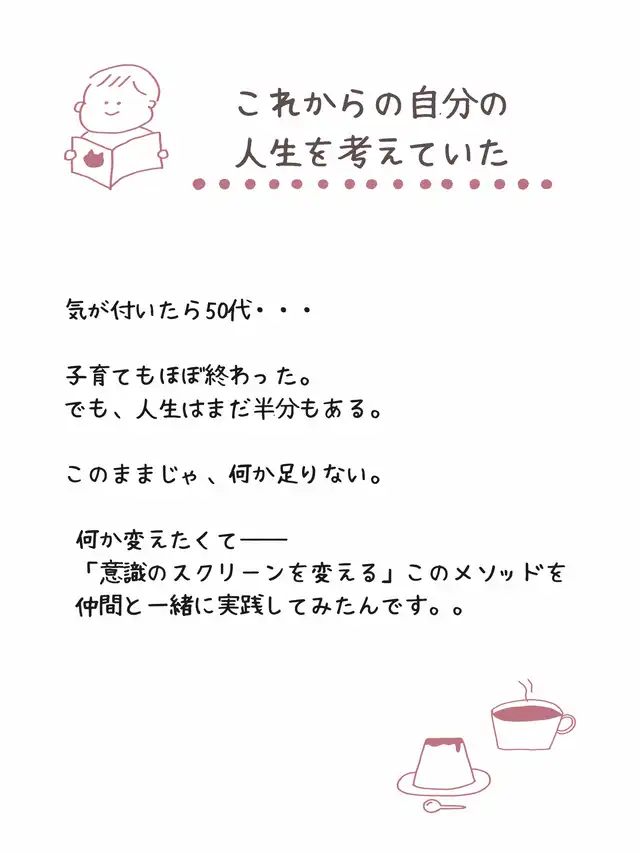 これからの自分の
人生を考えていた
気が付いたら50代・・・
子育てもほぼ終わった。
でも、人生はまだ半分もある。
このままじゃ、何か足りない。
何か変えたくて――
「意識のスクリーンを変える」このメソッドを
仲間と一緒に実践してみたんです。。